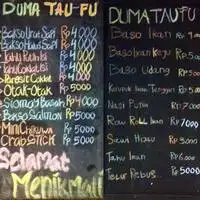 DUMA TAU-FU
Bakso Urat Sapi Rp 4000
Bakso Halus Sapi Rp 4000
Tahu Putih Isi Rp 4000
Tahu Coklat Isi Rp 4000
Pangsit Coklat Rp 4000
Otak-Otak Rp 5000
Siomay Basah Rp 4000
Bakso Salmon Rp 5000
Mini Chikuwa Rp 5000
Crabstick Rp 5000
Selamat
Menikmati
DUMA TAUFU
Baso Ikan Rp 4.000
Baso Ikan Keju Rp 5.00
Baso Udang Rp 5.00
Rp 5.000
Nasi Putih Rp 7000
Roll Ikan Rp 7000
Sawi Hijau Rp 3.000
Tahu Ikan Rp 6.000
Telur Rebus Rp 5.000